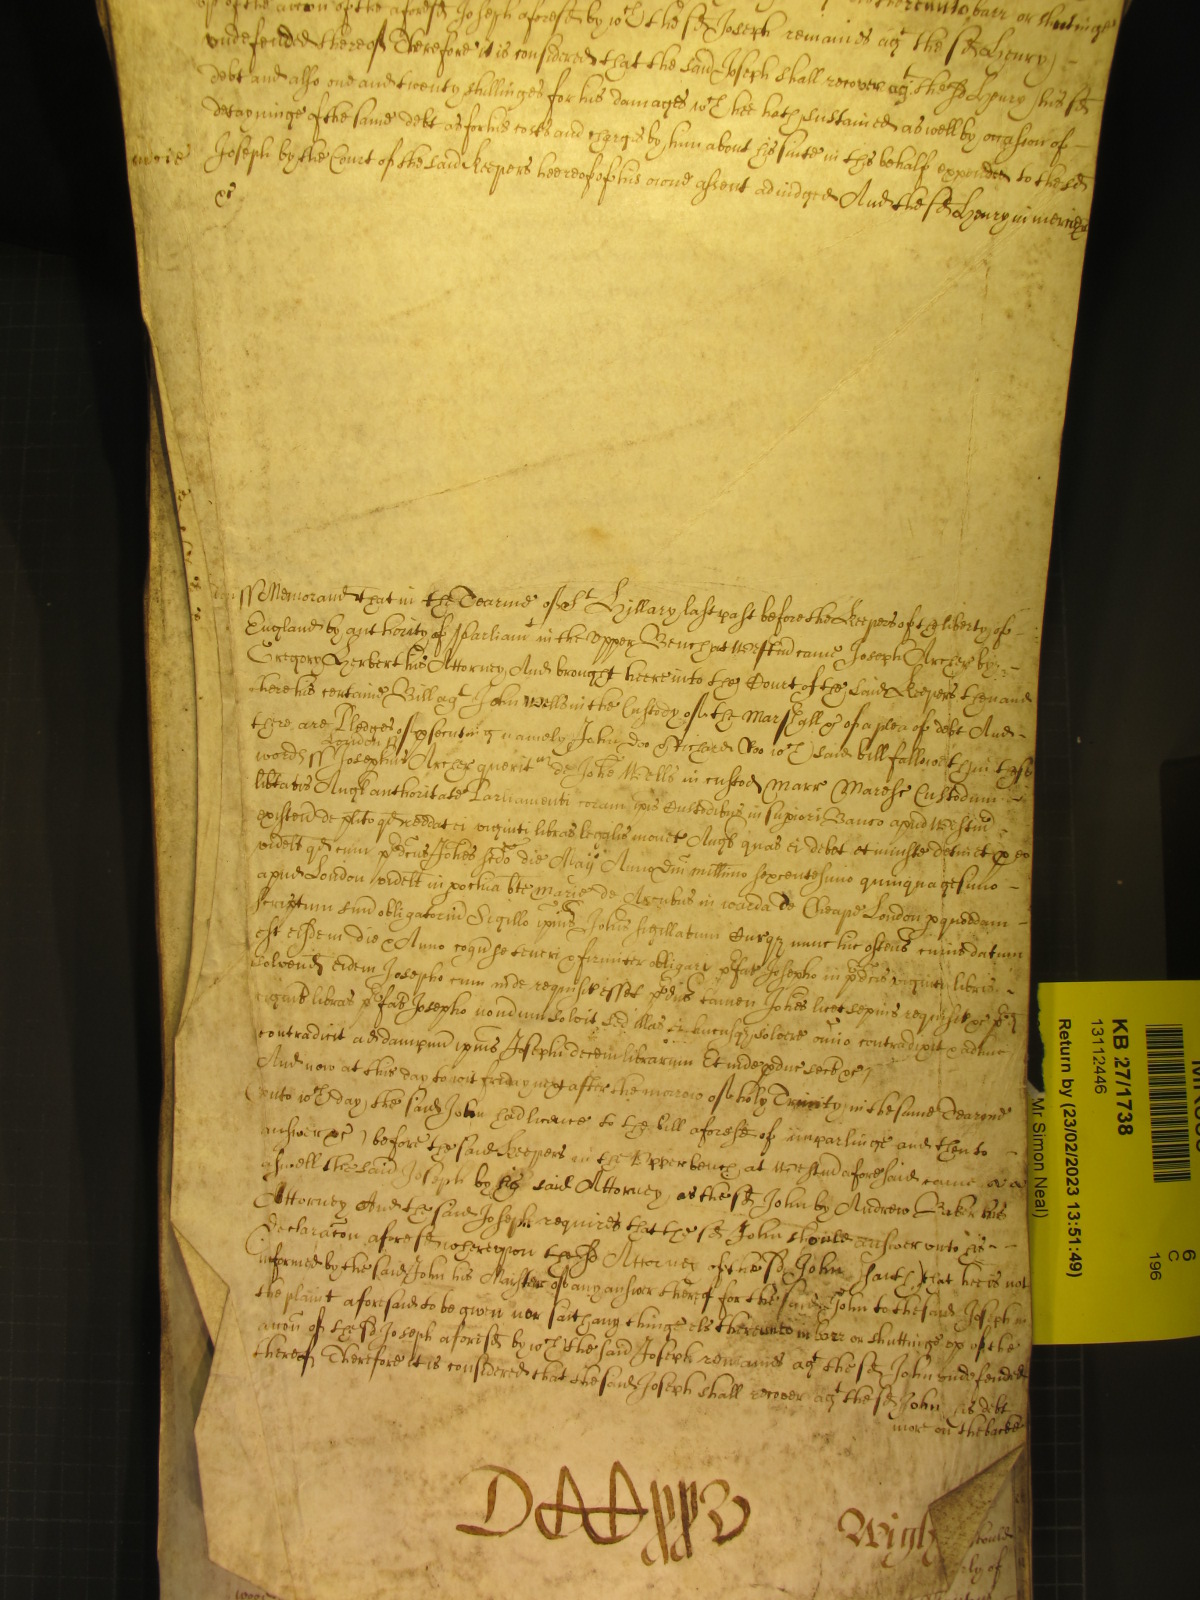 of the accon of the aforesd Joseph aforesd by wch the sd Joseph remaines agt the sd Henry
undefended thereof Therefore it is considered that the said Joseph shall recover agt the sd Henry his sd
debt and also one and twenty shillinges for his damages wch hee hath sustained as well by occasion of
detayninge of the same debt as for his costs and charges by him about his suite in this behalf expended to the sd
Joseph by the Court of the said Keepers heereof of his owne assent adiudged And the sd Henry in mercie
mercie
xc
ss Memorand that in the Tearme of St Hillary last past before the Keepers of the liberty of
England by authority of Parliamt in the upper Bench at Westm came Joseph Archer by
Gregory Herbert his Attorney And brought heere into the Court of the said Keepers then and
there his certaine Bill agt John Wells in the Custody of the Marshall &c of a plea of debt And
there are Pledges of prsecuting namely John Doo & Richard Roo wch said bill followeth in these
London
words ss Josephus Archer querit de Johe Wells in custod Marr Maresc Custodum
libtatis Angl authoritate Parliamenti coram ipis Custodibus in supiori Banco apud Westm
existen de plito qd reddat ei viginti libras legalis monet Angl quas ei debet et iniuste detinet p eo
videlt qd cum pdcus Johes scdo die Maij Anno Dni millimo sexcentesimo quinquagesimo
apud London videlt in pochia bte Marie de Arcubus in warda de Cheape London p quoddam
scriptum suum obligatorium Sigillo ipius Johis sigillatum Curq nunc hic ostens cuius datum
est eisdem die & Anno cogn se teneri & firmiter obligari pfat Josepho in pdcis viginti libris
solvend eidem Josepho cum inde requisit esset pdcus tamen Johes licet sepius requisit &c pd
viginti libras pfat Josepho nondum solvit sed illas ei hucusq solvere omino contradixit & adhuc
contradicit ad dampnum ipius Josephi decem librarum Et inde pduc sect &c
And now at this day to wit fryday next after the morow of holy Trinity in the same Tearme
unto wch day the said John had licence to the bill aforesd of imparlinge and then to
answer &c before the said Keepers in the Upper bench at Westm aforesaid came as
aswell the said Joseph by his said Attorney as the sd John by Andrew Baker his
Attorney And the said Joseph requires that the sd John should answer unto his
Declaracon aforesd whereupon the sd Attorney of the sd John saith that hee is not
informed by the said John his Maister of any answer thereof for the said John to the said Joseph in
the plaint aforesaid to be given nor saith any thinge els thereunto in barr or shuttinge up of the
accon of the sd Joseph aforesd by wch the said Joseph remaines agt the sd John undefended
thereof Therefore it is considered that the said Joseph shall recover agt the sd John his debt
more on the backe
Wigh
KB 27/1738
13112446
Return by (23/02/2023 13:51:49)
Mr Simon Neal)
6
C
196